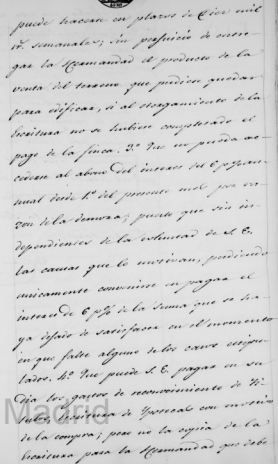 puede hacerse en plazos de diez mil
rs. semanales; sin perjuicio de entre-
gar la Hermandad el producto de la
venta del terreno que pudiera quedar
para edificar, si al otorgamiento de la
Escritura no se hubiere completado el
pago de la finca. 3º Que no pueda ac-
cederse al abono del interes del 6 p% an-
ual desde 1º del presente mes por ra-
zon de la demora; puesto que son in-
dependientes de la voluntad de S. E.
las causas que lo motivan, pudiendo
unicamente convenirse en pagar el
interes de 6 p% de la suma que se ha-
ya dejado de satisfacer en el momento
en que falte alguno de los casos estipu-
lados. 4º Que puede S. E. pagar en su
dia los gastos de reconocimiento de ti-
tulos, escritura de
de la compra; pero no la copia de la
Escritura para la Hermandad que debe
Madrid